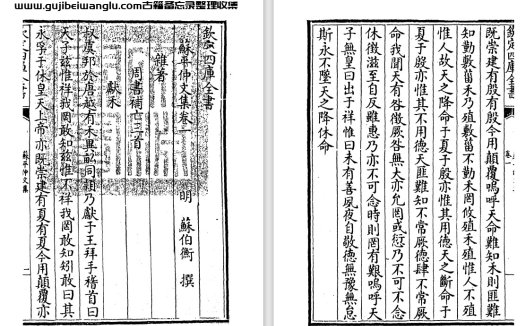 www.gujibeiwanglu.com古籍备忘录整理收集
欽定四庫全書
蘇平仲文集卷一
明 蘇伯衡 撰
雜著
周書補亡三首
獻禾
叔虞邦於唐越有禾異畝同穎乃獻于王拜手稽首曰
天子兹惟祥我罔敢知兹惟不祥我罔敢知矧敢曰其
永孚于休皇天上帝亦既崇建有夏有夏今用顛覆亦
蘇平仲文集
欽定四庫全書
既崇建有殷有殷今用顛覆嗚呼天命難知禾則匪難
知勤敷菑禾乃殖敷菑不勤禾罔攸殖禾殖惟人不殖
惟人故天之降命于夏于殷亦惟其用德天之斷命于
夏于殷亦惟其不用德天匪難知不常厥德肆不常厥
命我聞天有咎徵厥咎無大亦允罔或愆乃不可不念
休徵滋至自反雖惠乃亦不可念時則罔有艱嗚呼天
子無皇曰出于祥惟曰未有善夙夜自敬德無豫無怠
斯永不墜天之降休命